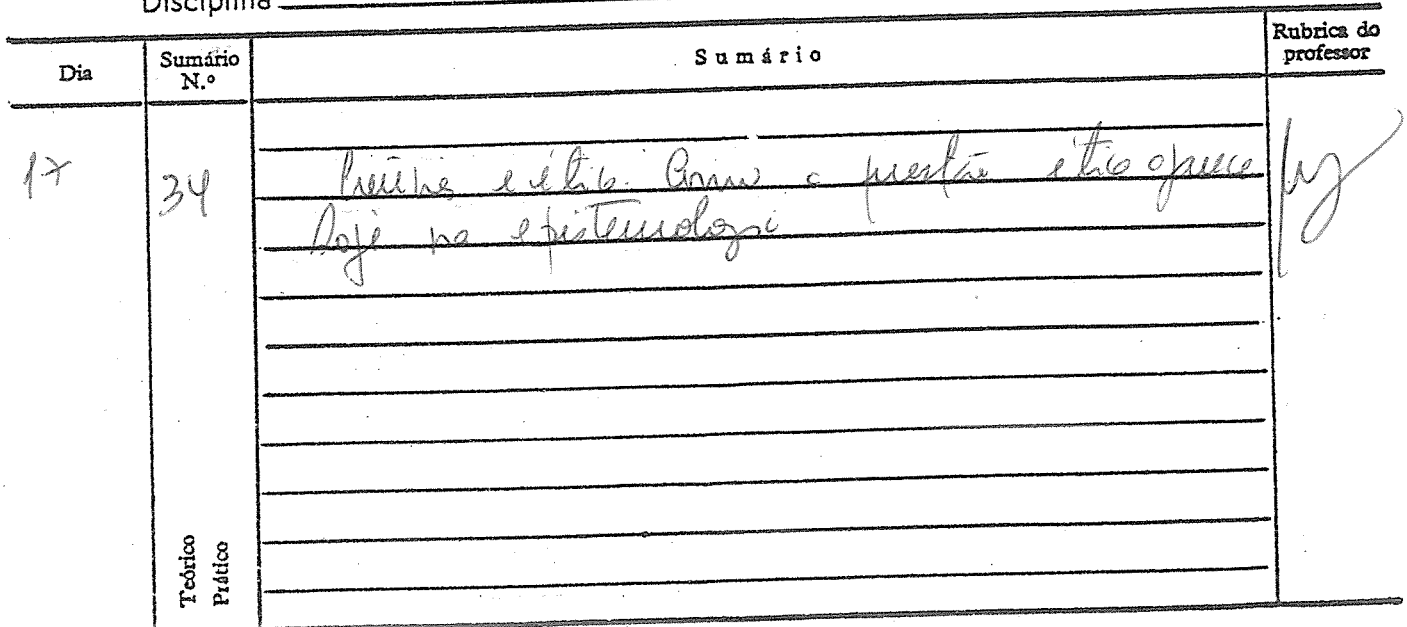 Disciplina
Dia
Sumário N.º
Sumário
Rubrica do professor
17
34
Ciência e ética. Como a questão ética aparece
hoje na epistemologia
Teórico
Prático